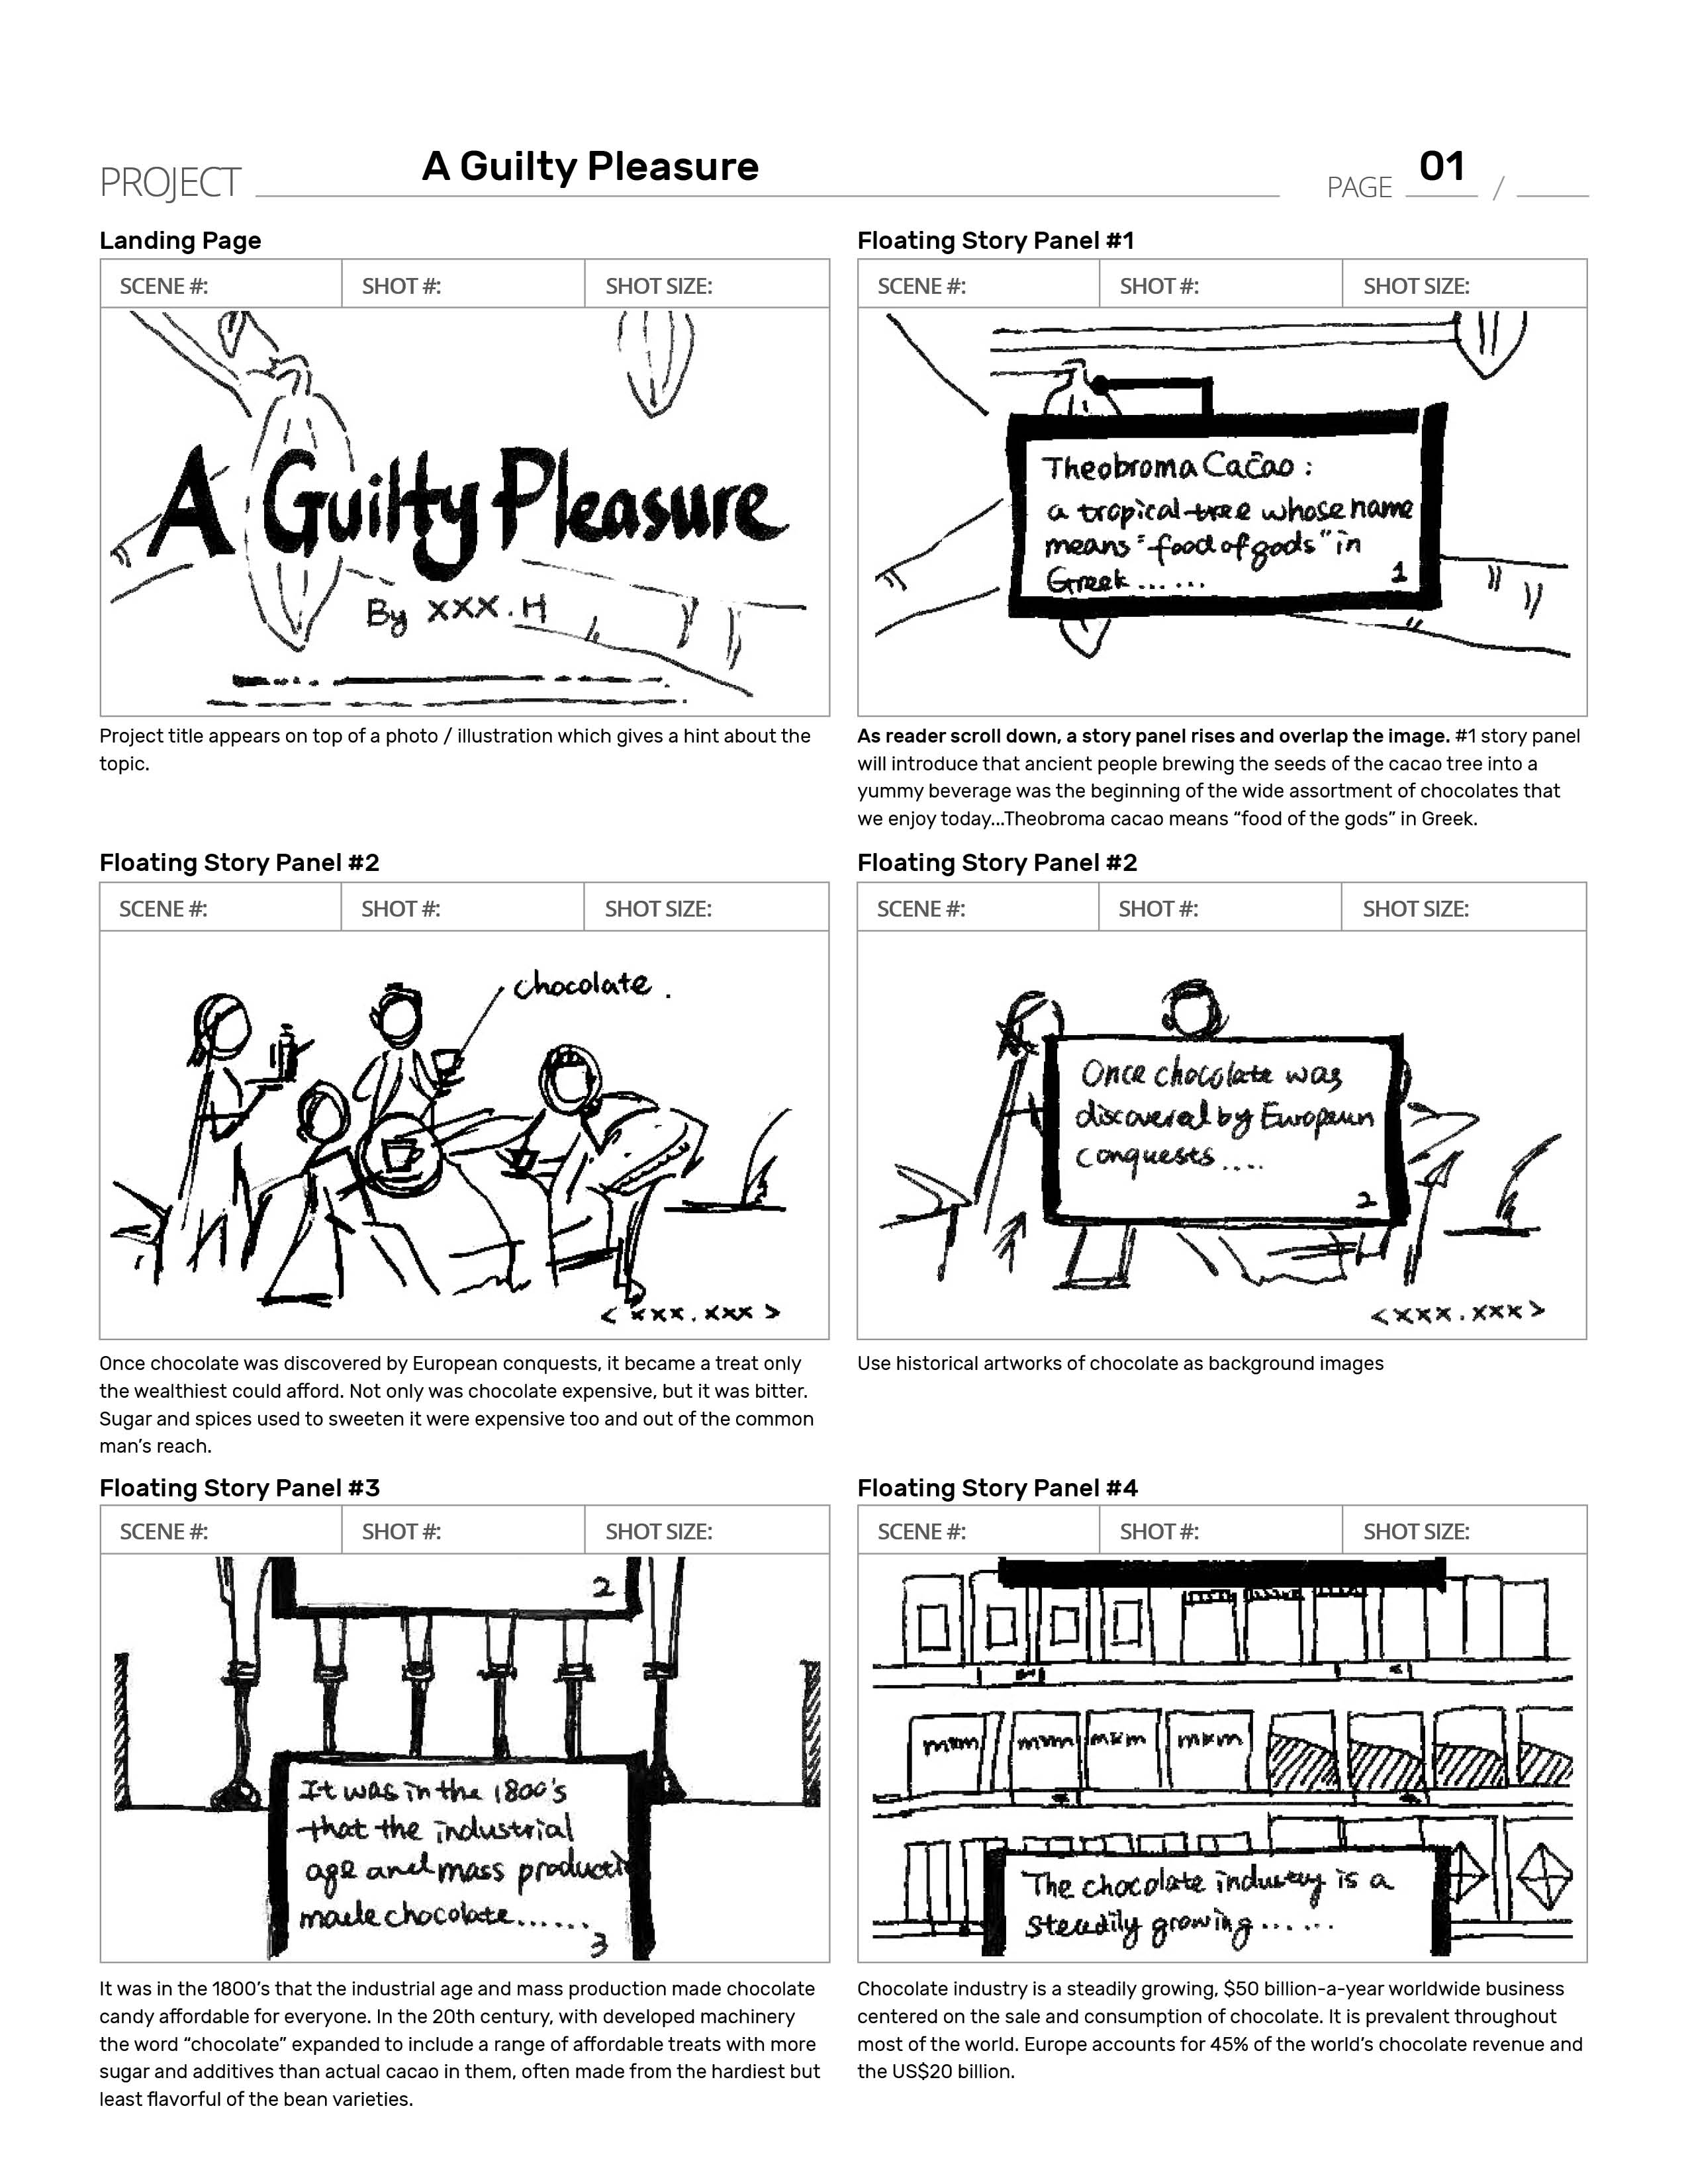 PROJECT A Guilty Pleasure PAGE 01 /
Landing Page
SCENE #: SHOT #: SHOT SIZE:
A Guilty Pleasure
By XXX.H
Project title appears on top of a photo / illustration which gives a hint about the
topic.
Floating Story Panel #1
SCENE #: SHOT #: SHOT SIZE:
Theobroma Cacao :
a tropical tree whose name
means "food of gods" in
Greek......
1
As reader scroll down, a story panel rises and overlap the image. #1 story panel
will introduce that ancient people brewing the seeds of the cacao tree into a
yummy beverage was the beginning of the wide assortment of chocolates that
we enjoy today...Theobroma cacao means “food of the gods” in Greek.
Floating Story Panel #2
SCENE #: SHOT #: SHOT SIZE:
chocolate.
<xxx.xxx>
Once chocolate was discovered by European conquests, it became a treat only
the wealthiest could afford. Not only was chocolate expensive, but it was bitter.
Sugar and spices used to sweeten it were expensive too and out of the common
man’s reach.
Floating Story Panel #2
SCENE #: SHOT #: SHOT SIZE:
Once chocolate was
discovered by European
conquests....
2
<xxx.xxx>
Use historical artworks of chocolate as background images
Floating Story Panel #3
SCENE #: SHOT #: SHOT SIZE:
2
It was in the 1800's
that the industrial
age and mass producti
made chocolate......
3
It was in the 1800’s that the industrial age and mass production made chocolate
candy affordable for everyone. In the 20th century, with developed machinery
the word “chocolate” expanded to include a range of affordable treats with more
sugar and additives than actual cacao in them, often made from the hardiest but
least flavorful of the bean varieties.
Floating Story Panel #4
SCENE #: SHOT #: SHOT SIZE:
mxm mxm mxm mxm
The chocolate industry is a
steadily growing......
Chocolate industry is a steadily growing, $50 billion-a-year worldwide business
centered on the sale and consumption of chocolate. It is prevalent throughout
most of the world. Europe accounts for 45% of the world’s chocolate revenue and
the US$20 billion.